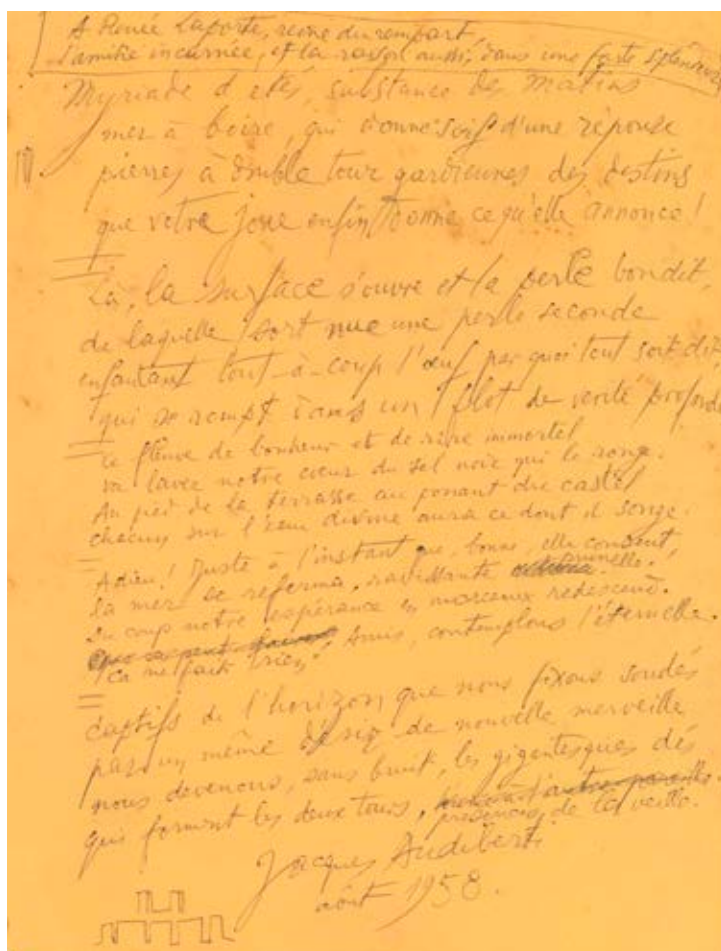 A Renée Laporte, reine du rempart,
l'amitié incarnée, et la raison aussi, dans une forte splendeur
Myriade d'étés, substance des matins
mer à boire, qui donne soif d'une réponse
pierres à double tour gardiennes des destins
que votre joue enfin donne ce qu'elle annonce !
Là, la surface s'ouvre et la perle bondit,
de laquelle sort nue une perle seconde
enfantant tout-à-coup l'œuf par quoi tout soit dit,
qui se rompt dans un flot de vérité profonde
ce fleuve de bonheur et de rire immortel
va laver notre cœur du sel noir qui le ronge.
Au pied de la terrasse au ponant du castel
chacun sur l'eau divine aura ce dont il songe.
Adieu ! Juste à l'instant que, bonne, elle consent,
la mer se referma, ravissante prunelle.
Du coup notre espérance en morceaux redescend.
ça ne fait rien, Amis, contemplons l'éternelle.
captifs de l'horizon que nous fixons soudés
par un même désir de nouvelle merveille
nous devenons, sans bruit, les gigantesques dés
qui forment les deux tours, présences de la veille.
Jacques Audiberti
août 1958.